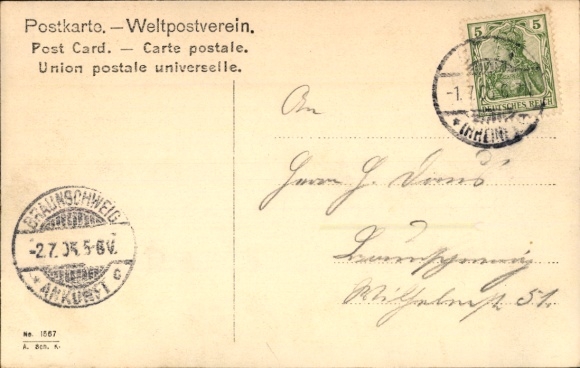 Postkarte. — Weltpostverein.
Post Card. — Carte postale.
Union postale universelle.
5 5
DEUTSCHES REICH
-1.7.
(RHEIN)
An
Herrn H.
Braunschweig
Wilhelmstr 51.
BRAUNSCHWEIG
-2.7.05.5-6V.
* ANKUNFT c
No. 1557
A. Sch. K.